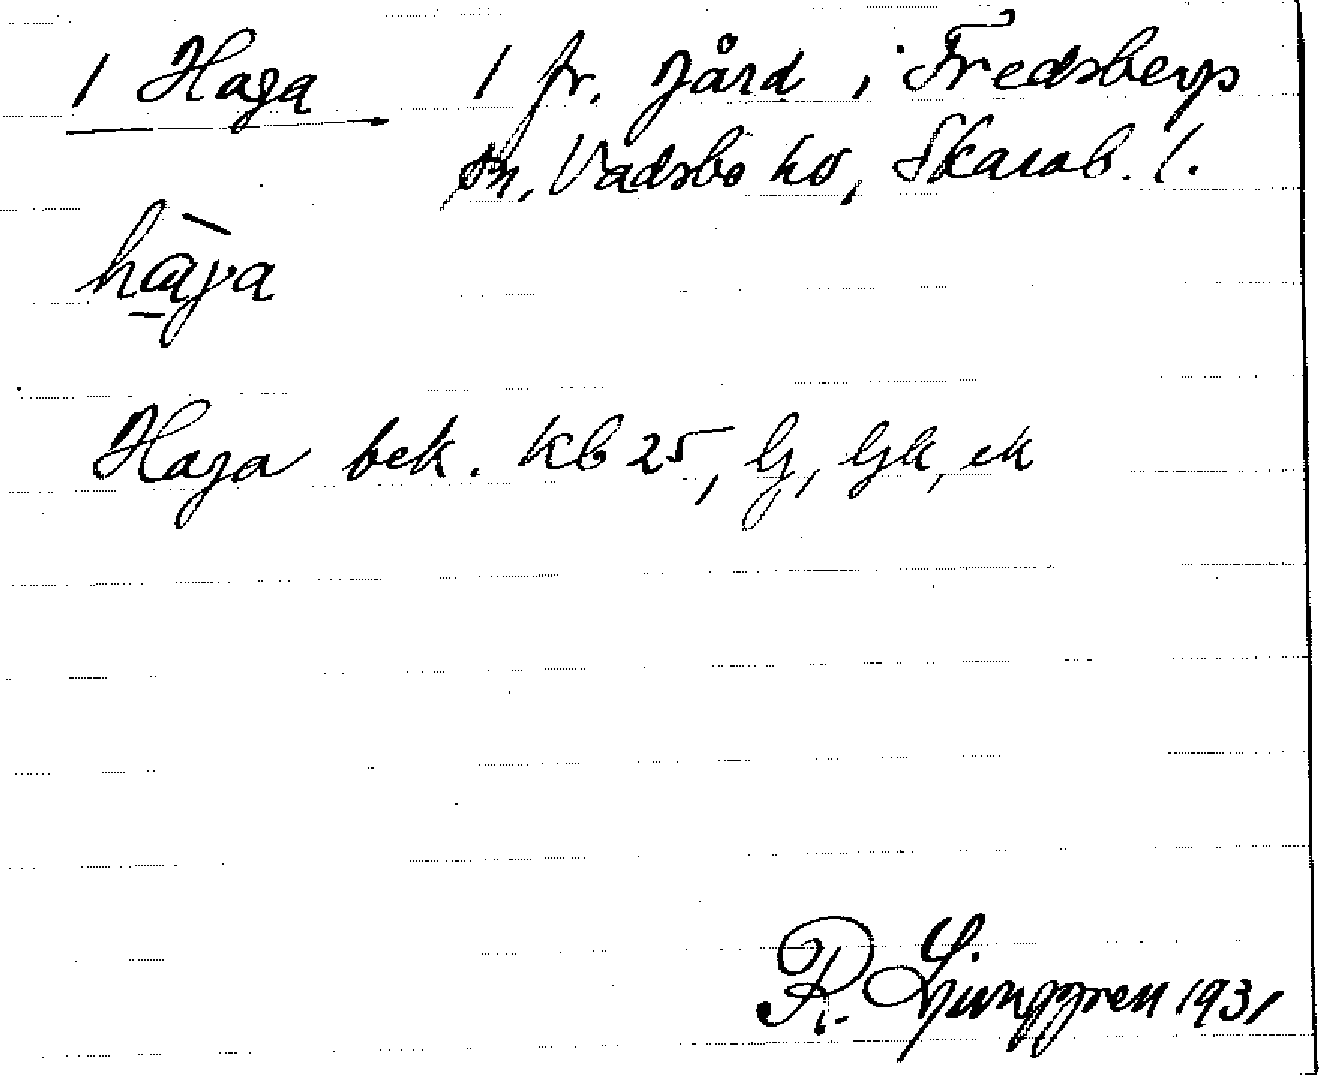 1 Haga 1 fr. gård i Fredsbergs
sn, Vadsbo hd, Skarab. l.
hàga
Haga bek. Kb 25, G, Gk, ek
R. Ljunggren 1931